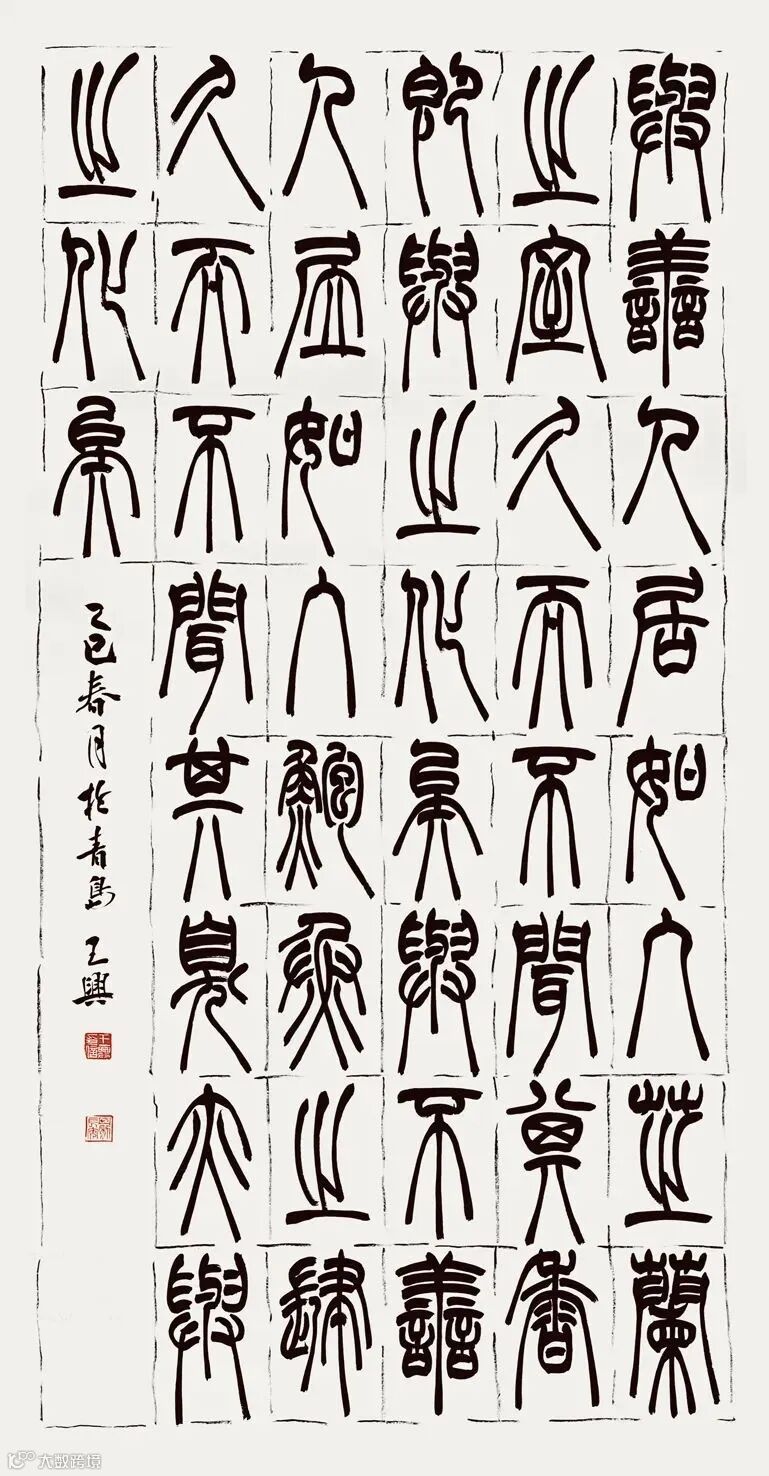 與善人居如入芝蘭
之室久而不聞其香
即與之化矣與不善
人居如入鮑魚之肆
久而不聞其臭亦與
之化矣
乙巳春月於青島王興
大数跨境